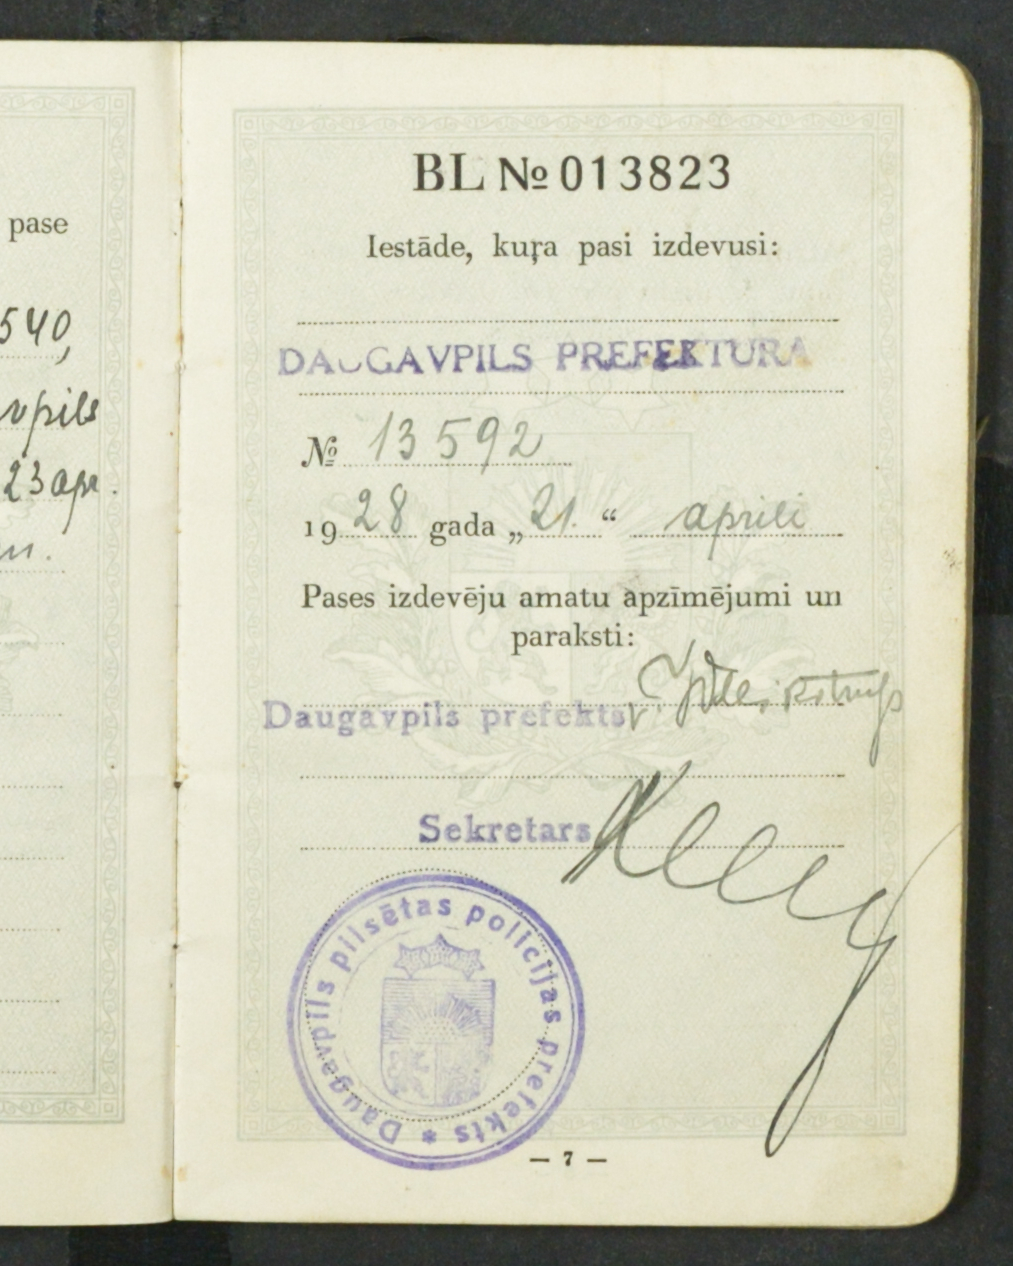 pase
540,
vpils
23 apr.
BL № 013823
Iestāde, kuŗa pasi izdevusi:
DAUGAVPILS PREFEKTURA
№ 13592
1928 gada „21.“ aprili
Pases izdevēju amatu apzīmējumi un
paraksti:
Daugavpils prefekts
Sekretars
Daugavpils pilsētas policijas prefekts *
— 7 —